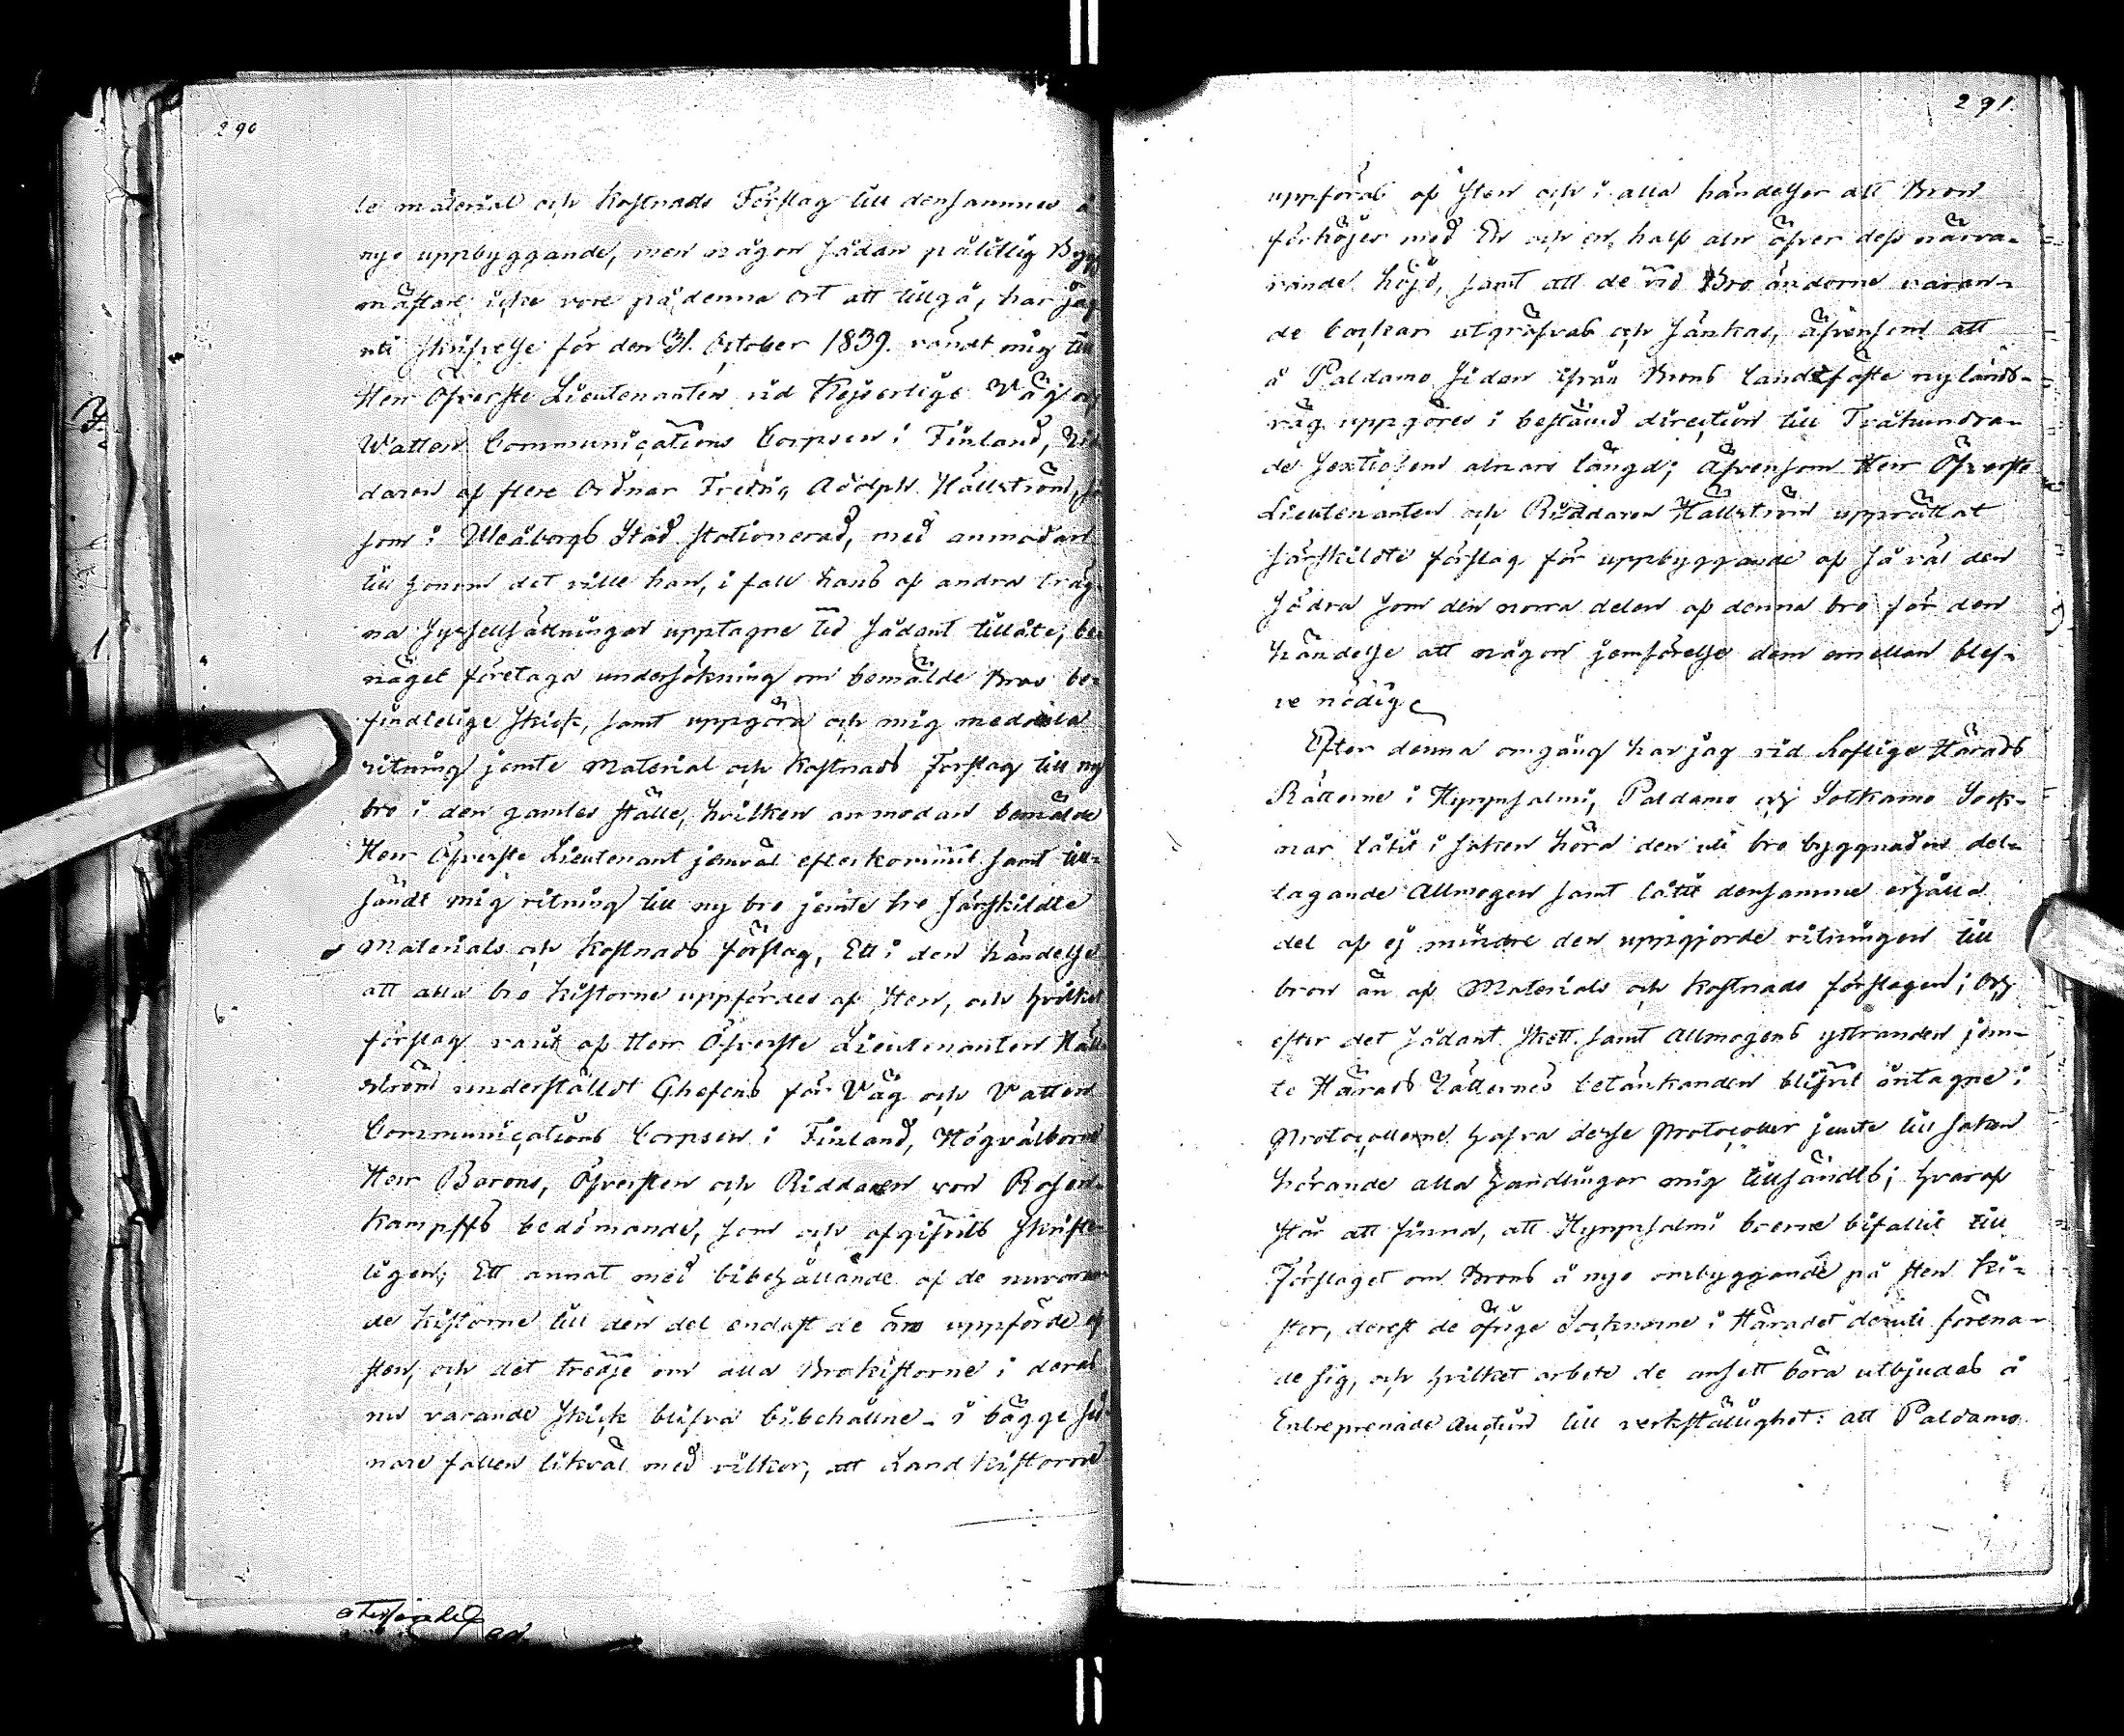 290
te material och Kostnads Förslag till densammes å
nyo uppbyggande, men någon sådan pålitlig Byg
mästare icke vore på denna ort att tillgå, har jag
uti skrifvelse för den 31. October 1839. vändt mig till
Herr Öfverste Lieutenanten vid Kejserliga Väg och
Watten Communications Corpsen i Finland, Rid
daren af flere Ordnar Fredric Adolph Hällström,
som i Uleåborgs Stad stationerad, med anmodan
till honom det ville han, i fall hans af andra träg-
na sysselsättningar upptagne tid sådant tillåte, be-
näget företaga undersökning om bemälde Bros be-
findtelige skick, samt uppgöra och mig meddela
ritning jemte Material och Kostnads Förslag till ny
bro i den gamles ställe, hvilken anmodan bemälde
Herr Öfverste Lieutenant jemväl efterkommit samt till-
sändt mig ritning till ny bro jemte tre särskildte
Materials och Kostnads förslag, Ett i den händelse
att alla bro kistorne uppfördes af sten, och hvilket
förslag varit af Herr Öfverste Lieutenanten Häll-
ström underställdt Chefens för Väg och Vatten
Communications Corpsen i Finland, Högvälborne
Herr Barons, Öfversten och Riddaren von Rosen-
kampffs bedömande, som och afgifvits skrifte-
ligen; Ett annat med bibehållande af de nuvaran-
de kistorne till den del endast de äro uppförde af
sten, och det tredje om alla Brokistorne i deras
nu varande skick blifva bibehållne - i bägge se-
nare fallen likväl med vilkor, att Landkistorne
291.
uppföras af sten och i alla händelser att Bron
förhöjes med En och en half aln öfver dess närva-
rande höjd, samt att de vid Bro ändorne varan-
de backar utgräfvas och sänkas, äfvensom att
å Paldamo sidan ifrån Brons landtfäste ny lands-
väg uppgöres i bestämd direction till Tvåhundra-
de sextiofem alnars längd; Äfvensom Herr Öfverste
Lieutenanten och Riddaren Hällström upprättat
särskildte förslag för uppbyggande af så väl den
södra som den norra delen af denna bro för den
händelse att någon jemförelse dem emellan blef-
ve nödig
Efter denna omgång har jag vid Loflige Härads
Rätterne i Hyrynsalmi, Paldamo och Sotkamo Sock-
nar låtit i saken höra den uti bro byggnaden del-
tagande Allmogen samt låtit densamme erhålla
del af ej mindre den uppgjorde ritningen till
bron än af Materials och Kostnads förslagen; Och
efter det sådant skett samt Allmogens yttranden jem-
te Härads Rätternes betänkanden blifvit intagne i
Protocollerne hafva desse Protocoller jemte till saken
hörande alla handlingar mig tillsändts; hvaraf
står att finna, att Hyrynsalmi boerne bifallit till
Förslaget om Brons å nyo ombyggande på sten ki-
stor, derest de öfrige Socknarne i Häradet deruti förena-
de sig, och hvilket arbete de ansett böra utbjudas å
Entreprenade Auction till verkställighet: att Paldamo